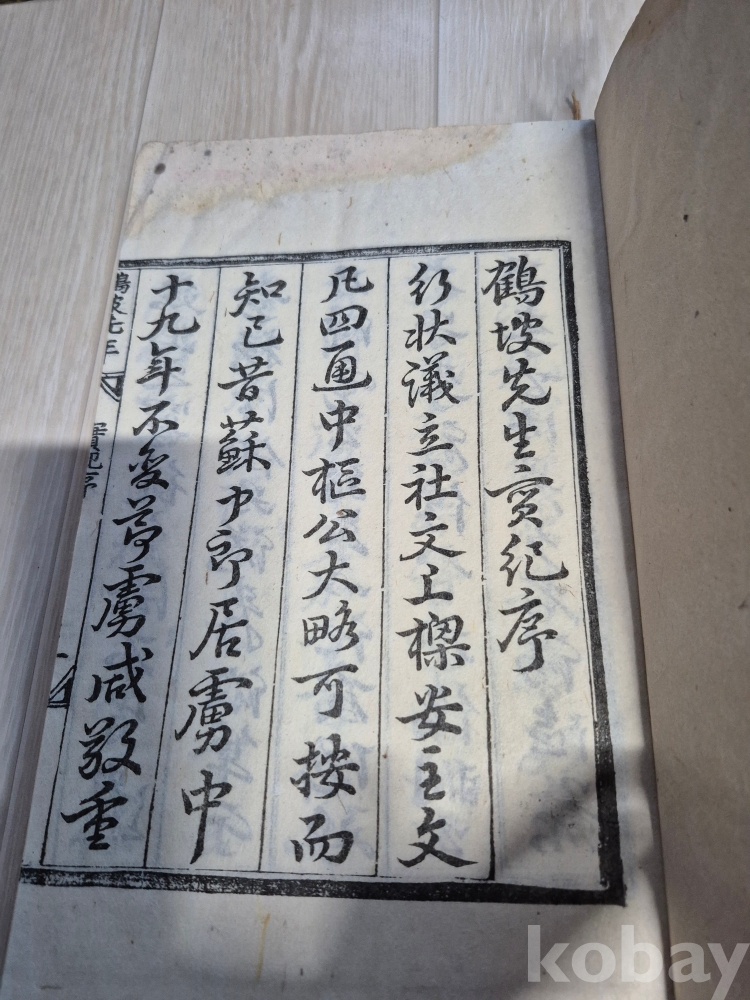 鶴坡先生實紀序
行狀議立社文上樑安主文
凡四通中樞公大略可按而
知已昔蘇中郎居虜中
十九年不變節虜咸敬重
鶴坡先生
實紀序
kobay